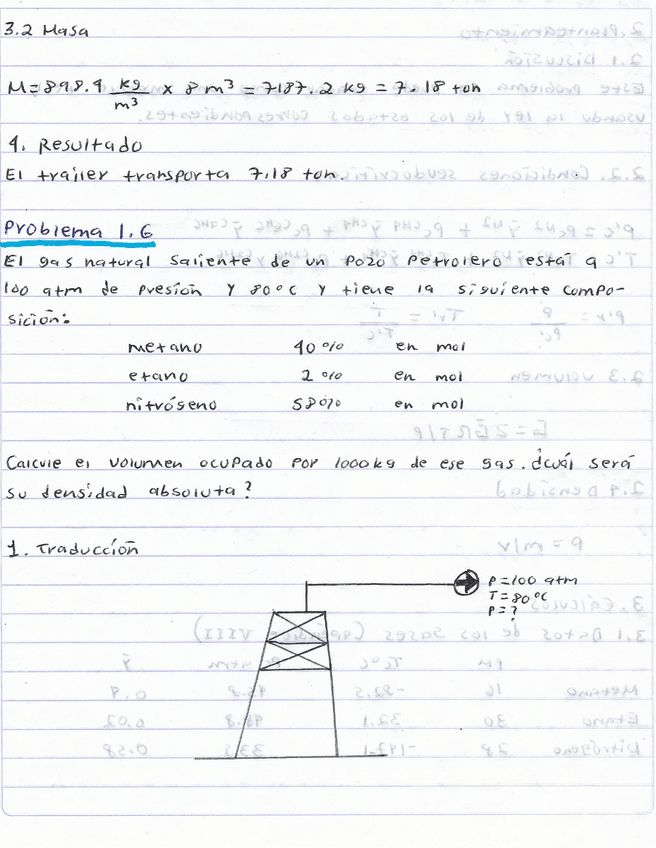 3.2 Masa
M = 898.9 kg/m³ x 8 m³ = 7187.2 kg = 7.18 ton
4. Resultado
El trailer transporta 7.18 ton.
Problema 1.6
El gas natural saliente de un pozo petrolero está a
100 atm de presión y 80°C y tiene la siguiente compo-
sición:
metano 40% en mol
etano 2% en mol
nitróseno 58% en mol
Calcule el volumen ocupado por 1000 kg de ese gas. ¿cuál será
su densidad absoluta?
1. Traducción
P = 100 atm
T = 80°C
P = ?